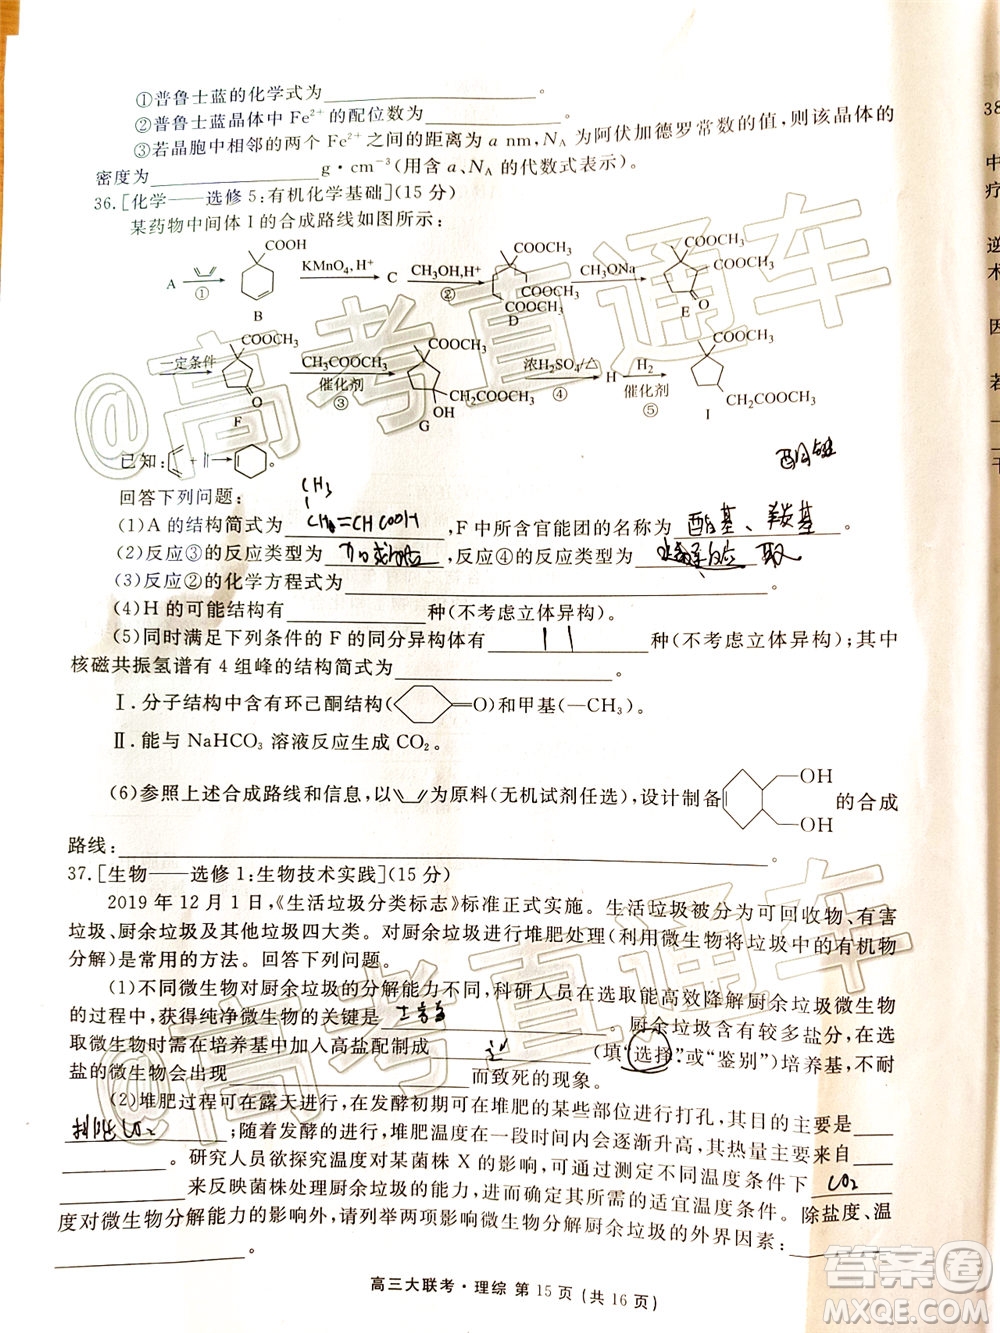 ①普鲁士蓝的化学式为
②普鲁士蓝晶体中 Fe²⁺ 的配位数为
③若晶胞中相邻的两个 Fe²⁺ 之间的距离为 a nm, N_A 为阿伏加德罗常数的值，则该晶体的
密度为 g·cm⁻³(用含 a、N_A 的代数式表示)。
36.[化学——选修 5:有机化学基础](15 分)
某药物中间体 I 的合成路线如图所示:
COOH COOCH₃ COOCH₃
A ① B KMnO₄, H⁺ C CH₃OH, H⁺ ② COOCH₃ COOCH₃ D CH₃ONa COOCH₃ O E
一定条件 COOCH₃ O F CH₃COOCH₃ 催化剂 ③ COOCH₃ CH₂COOCH₃ OH G 浓H₂SO₄/△ ④ H H₂ 催化剂 ⑤ COOCH₃ CH₂COOCH₃ I
已知: + → 。
回答下列问题:
CH₃
(1)A 的结构简式为 CH₂=CHCOOH ,F 中所含官能团的名称为 酯基、羰基 。
(2)反应③的反应类型为 加成反应 ,反应④的反应类型为 取
(3)反应②的化学方程式为 。
(4)H 的可能结构有 种(不考虑立体异构)。
(5)同时满足下列条件的 F 的同分异构体有 11 种(不考虑立体异构);其中
核磁共振氢谱有 4 组峰的结构简式为 。
Ⅰ.分子结构中含有环己酮结构( =O)和甲基(—CH₃)。
Ⅱ.能与 NaHCO₃ 溶液反应生成 CO₂。
OH
(6)参照上述合成路线和信息,以 为原料(无机试剂任选),设计制备 的合成
OH
路线: 。
37.[生物——选修 1:生物技术实践](15 分)
2019 年 12 月 1 日,《生活垃圾分类标志》标准正式实施。生活垃圾被分为可回收物、有害
垃圾、厨余垃圾及其他垃圾四大类。对厨余垃圾进行堆肥处理(利用微生物将垃圾中的有机物
分解)是常用的方法。回答下列问题。
(1)不同微生物对厨余垃圾的分解能力不同,科研人员在选取能高效降解厨余垃圾微生物
的过程中,获得纯净微生物的关键是 。厨余垃圾中含有较多盐分,在选
取微生物时需在培养基中加入高盐配制成 (填“选择”或“鉴别”)培养基,不耐
盐的微生物会出现 而致死的现象。
(2)堆肥过程可在露天进行,在发酵初期可在堆肥的某些部位进行打孔,其目的主要是
排除CO₂ ;随着发酵的进行,堆肥温度在一段时间内会逐渐升高,其热量主要来自
。研究人员欲探究温度对某菌株 X 的影响,可通过测定不同温度条件下 CO₂
来反映菌株处理厨余垃圾的能力,进而探究其所需的适宜温度条件。除盐度、温
度对微生物分解能力的影响外,请列举两项影响微生物分解厨余垃圾的外界因素:
。
高三大联考·理综 第 15 页(共 16 页)
@高考直通车
@高考直通车
答案圈
MXQE.COM
38
中
疗
逆
术
因
若